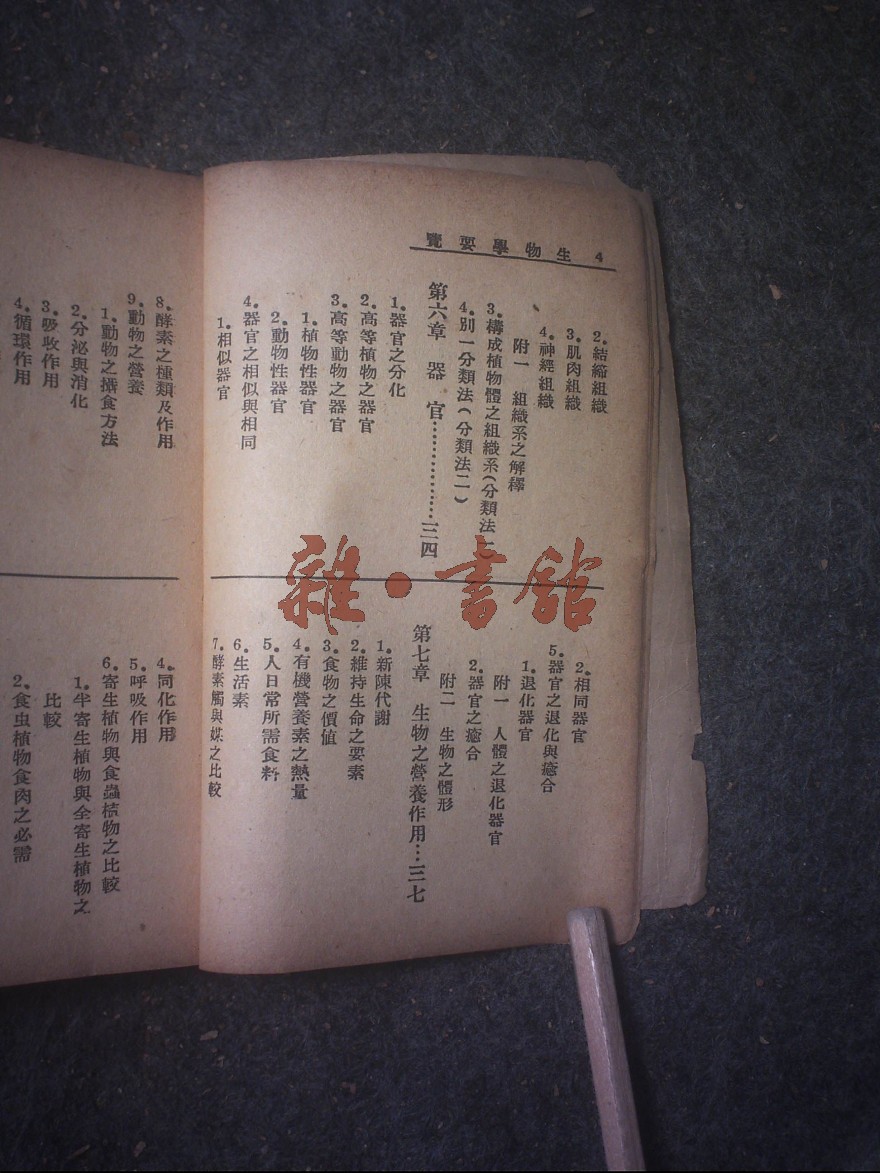 4 生物學要覽
2.結締組織
3.肌肉組織
4.神經組織
附一 組織系之解釋
3.構成植物體之組織系(分類法
4.別一分類法(分類法二)
第六章 器官……………三四
1.器官之分化
2.高等植物之器官
3.高等動物之器官
1.植物性器官
2.動物性器官
4.器官之相似與相同
1.相似器官
2.相同器官
5.器官之退化與癒合
1.退化器官
附一 人體之退化器官
2.器官之癒合
附二 生物之體形
第七章 生物之營養作用…三七
1.新陳代謝
2.維持生命之要素
3.食物之價值
4.有機營養素之熱量
5.人日常所需食料
6.生活素
7.酵素觸與媒之比較
8.酵素之種類及作用
9.動物之營養
1.動物之攝食方法
2.分泌與消化
3.吸收作用
4.循環作用
4.同化作用
5.呼吸作用
6.寄生植物與食蟲植物之比較
1.半寄生植物與全寄生植物之
比較
2.食虫植物食肉之必需
雜·書館